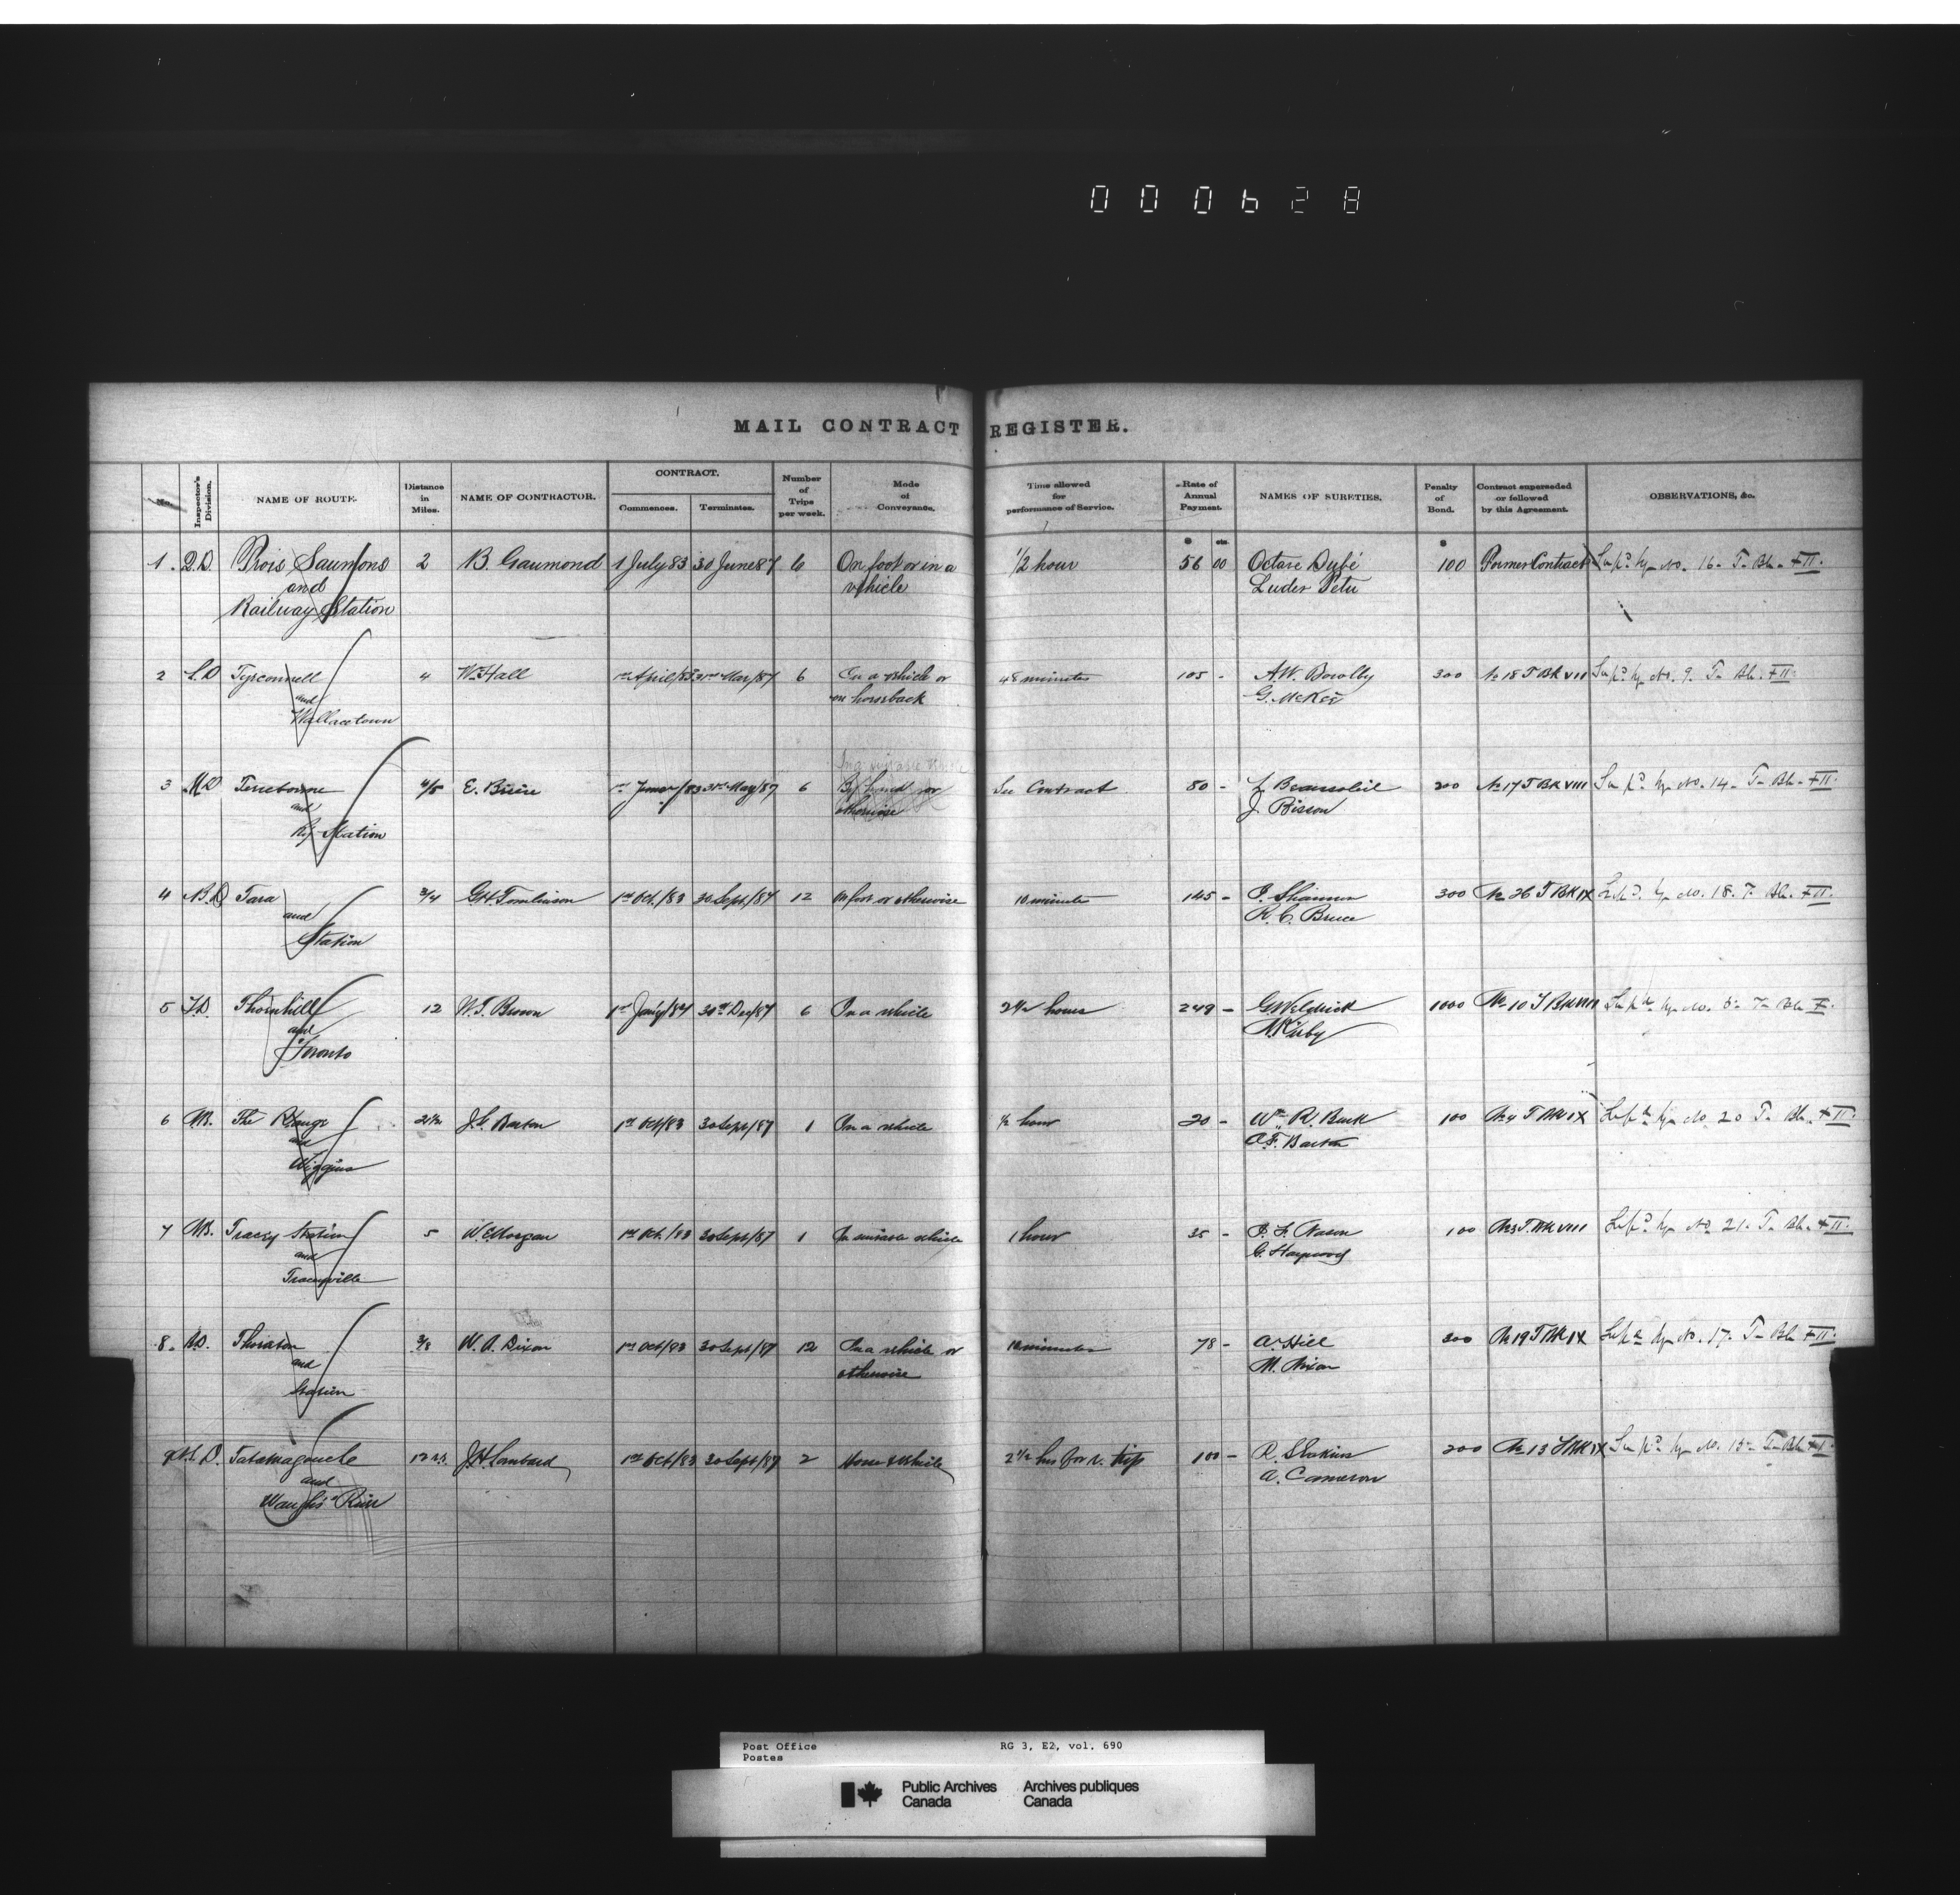 000628
MAIL CONTRACT REGISTER.
No. Inspector's Division. NAME OF ROUTE. Distance in Miles. NAME OF CONTRACTOR. CONTRACT. Commences. Terminates. Number of Trips per week. Mode of Conveyance. Time allowed for performance of Service. Rate of Annual Payment. NAMES OF SURETIES. Penalty of Bond. Contract superseded or followed by this Agreement. OBSERVATIONS, &c.
$ cts. $
1. Q.D. Trois Saumons 2 B. Gaumond 1 July 83 30 June 87 6 On foot or in a 1/2 hour 56 00 Octave Dubé 100 Former Contract No. 16 T Bk XII.
and vehicle Luder Petu
Railway Station
2 L.D Tyrconnell 4 Wm Hall 1st April/83 31st Mar/87 6 On a vehicle or 48 minutes 105 - A.W. 300 No 18 T BK VIII No. 9. T Bk. XII.
and on horseback G. McKee
Wallacetown
3 M.D Terrebonne 4/5 E. 1st June/83 31st May/87 6 By hand or See Contract 80 - L. Beausoleil 200 No 17 T BK VIII No. 14. T Bk. XII.
and otherwise J. Bisson
Ry Station
4 B.D Tara 3/4 G.H. Tomlinson 1st Oct./83 30 Sept/87 12 On foot or otherwise 10 minutes 145 - Shannon 300 No 26 T BK IX No. 18. T Bk. XII.
and R. C. Bruce
Station
5 T.D. Thornhill 12 W.T. 1st Jany/84 30th Dec/87 6 On a vehicle 2 1/2 hours 249 - G. Weldrick 1000 No 10 T BK VIII T Bk X.
and Kirby
Toronto
6 N.B. The Range 2 1/2 J.G. Barton 1st Oct/83 30 Sept/87 1 On a vehicle 1/2 hour 20 - Wm R. Buck 100 No 4 T BK IX No 20 T Bk. XII.
and Barton
Wiggins
7 N.B. Tracey Station 5 W.C. Morgan 1st Oct./83 30 Sept/87 1 On suitable vehicle 1 hour 35 - Nason 100 No 3 T BK VIII No 21. T Bk. XII.
and
Traceyville
8. B.D. Thornton 3/8 W. A. Dixon 1st Oct/83 30 Sept/87 12 On a vehicle or 10 minutes 78 - A. Hill 300 No 19 T BK IX No. 17. T Bk XII.
and otherwise M. Nixon
Station
9 N.S. D. Tatamagouche 12 J.H. Lombard 1st Oct/83 30 Sept/87 2 Horse & vehicle 2 1/2 hrs for r. trip 100 - 200 No 13 T BK IX No. 15 T Bk XII.
and A. Cameron
Waugh's River
Post Office RG 3, E2, vol. 690
Postes
Public Archives Archives publiques
Canada Canada